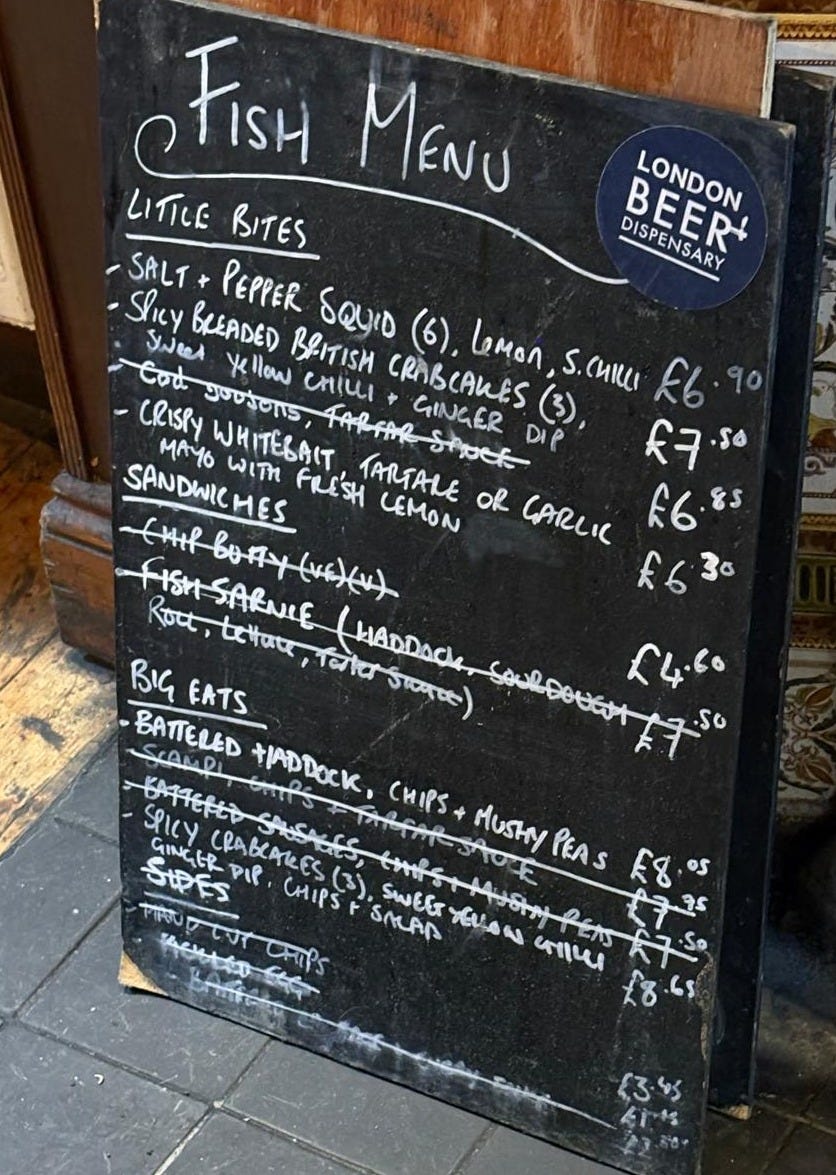 FISH MENU
LONDON
BEER
DISPENSARY
LITTLE BITES
- SALT + PEPPER SQUID (6), LEMON, S.CHILLI £6.90
- SPICY BREADED BRITISH CRABCAKES (3),
SWEET YELLOW CHILLI + GINGER DIP £7.50
- Cod goujons, TARTAR SAUCE £6.85
- CRISPY WHITEBAIT, TARTARE OR GARLIC
MAYO WITH FRESH LEMON £6.30
SANDWICHES
- CHIP BUTTY (VE)(V) £4.60
- FISH SARNIE (HADDOCK, SOURDOUGH £7.50
Roll, Lettuce, Tartar Sauce)
BIG EATS
- BATTERED HADDOCK, CHIPS + MUSHY PEAS £8.05
- SCAMPI, CHIPS + TARTAR SAUCE £7.95
- BATTERED SAUSAGES, CHIPS + MUSHY PEAS £7.50
- SPICY CRABCAKES (3), SWEET YELLOW CHILLI
GINGER DIP, CHIPS + SALAD £8.65
SIDES
- HAND CUT CHIPS £3.45
PICKLED EGG